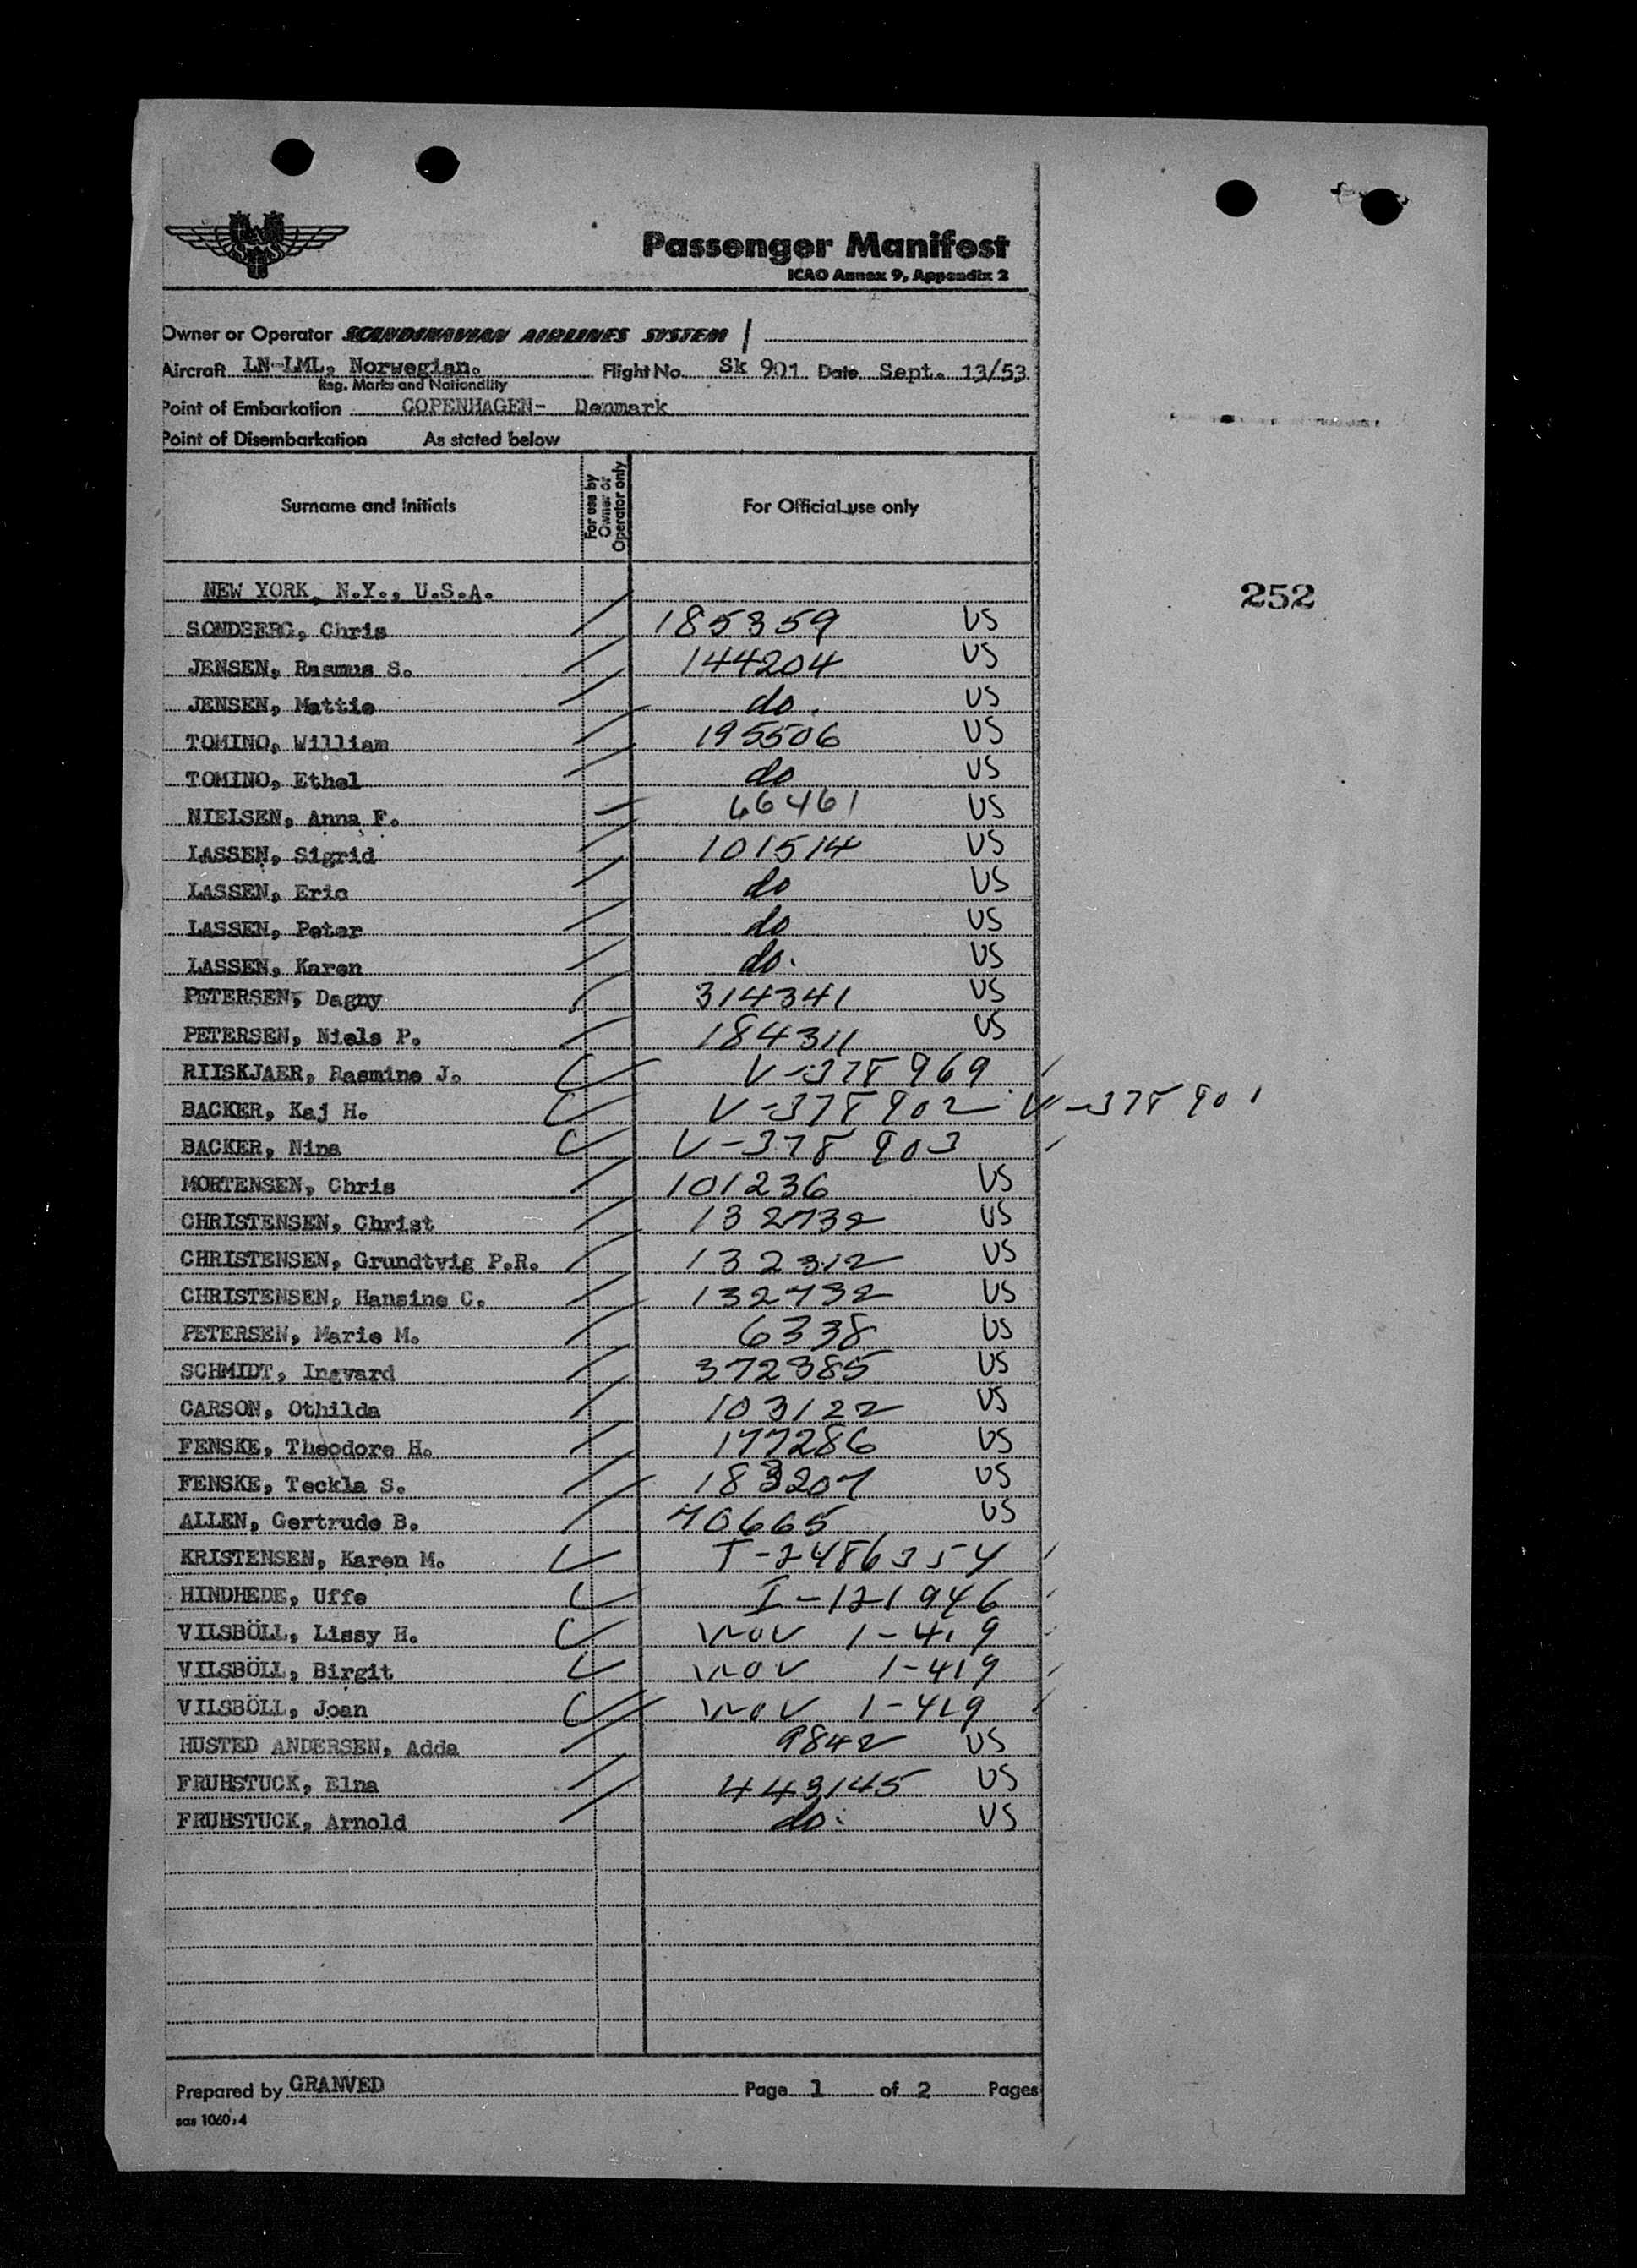 SAS
Passenger Manifest
ICAO Annex 9, Appendix 2
Owner or Operator SCANDINAVIAN AIRLINES SYSTEM
Aircraft LN-LML, Norwegian. Flight No. Sk 901 Date Sept. 13/53
Reg. Marks and Nationality
Point of Embarkation COPENHAGEN- Denmark
Point of Disembarkation As stated below
Surname and Initials For use by Owner or Operator only For Official use only
NEW YORK, N.Y., U.S.A.
252
SONDBERG, Chris 185359 US
JENSEN, Rasmus S. 144204 US
JENSEN, Mattie do. US
TOMINO, William 195506 US
TOMINO, Ethel do US
NIELSEN, Anna F. 66461 US
LASSEN, Sigrid 101514 US
LASSEN, Eric do US
LASSEN, Peter do US
LASSEN, Karen do. US
PETERSEN, Dagny 314341 US
PETERSEN, Niels P. 184311 US
RIISKJAER, Rasmine J. V-378969
BACKER, Kaj H. V-378902 V-378901
BACKER, Nina V-378903
MORTENSEN, Chris 101236 US
CHRISTENSEN, Christ 132732 US
CHRISTENSEN, Grundtvig P.R. 132312 US
CHRISTENSEN, Hansine C. 132732 US
PETERSEN, Marie M. 6338 US
SCHMIDT, Ingvard 372385 US
CARSON, Othilda 103122 US
FENSKE, Theodore H. 177286 US
FENSKE, Teckla S. 183207 US
ALLEN, Gertrude B. 70665 US
KRISTENSEN, Karen M. I-2486354
HINDHEDE, Uffe I-121946
VILSBÖLL, Lissy H. 1-419
VILSBÖLL, Birgit 1-419
VILSBÖLL, Joan 1-419
HUSTED ANDERSEN, Adda 9842 US
FRUHSTUCK, Elna 443145 US
FRUHSTUCK, Arnold do. US
Prepared by GRANVED Page 1 of 2 Pages
sas 1060:4